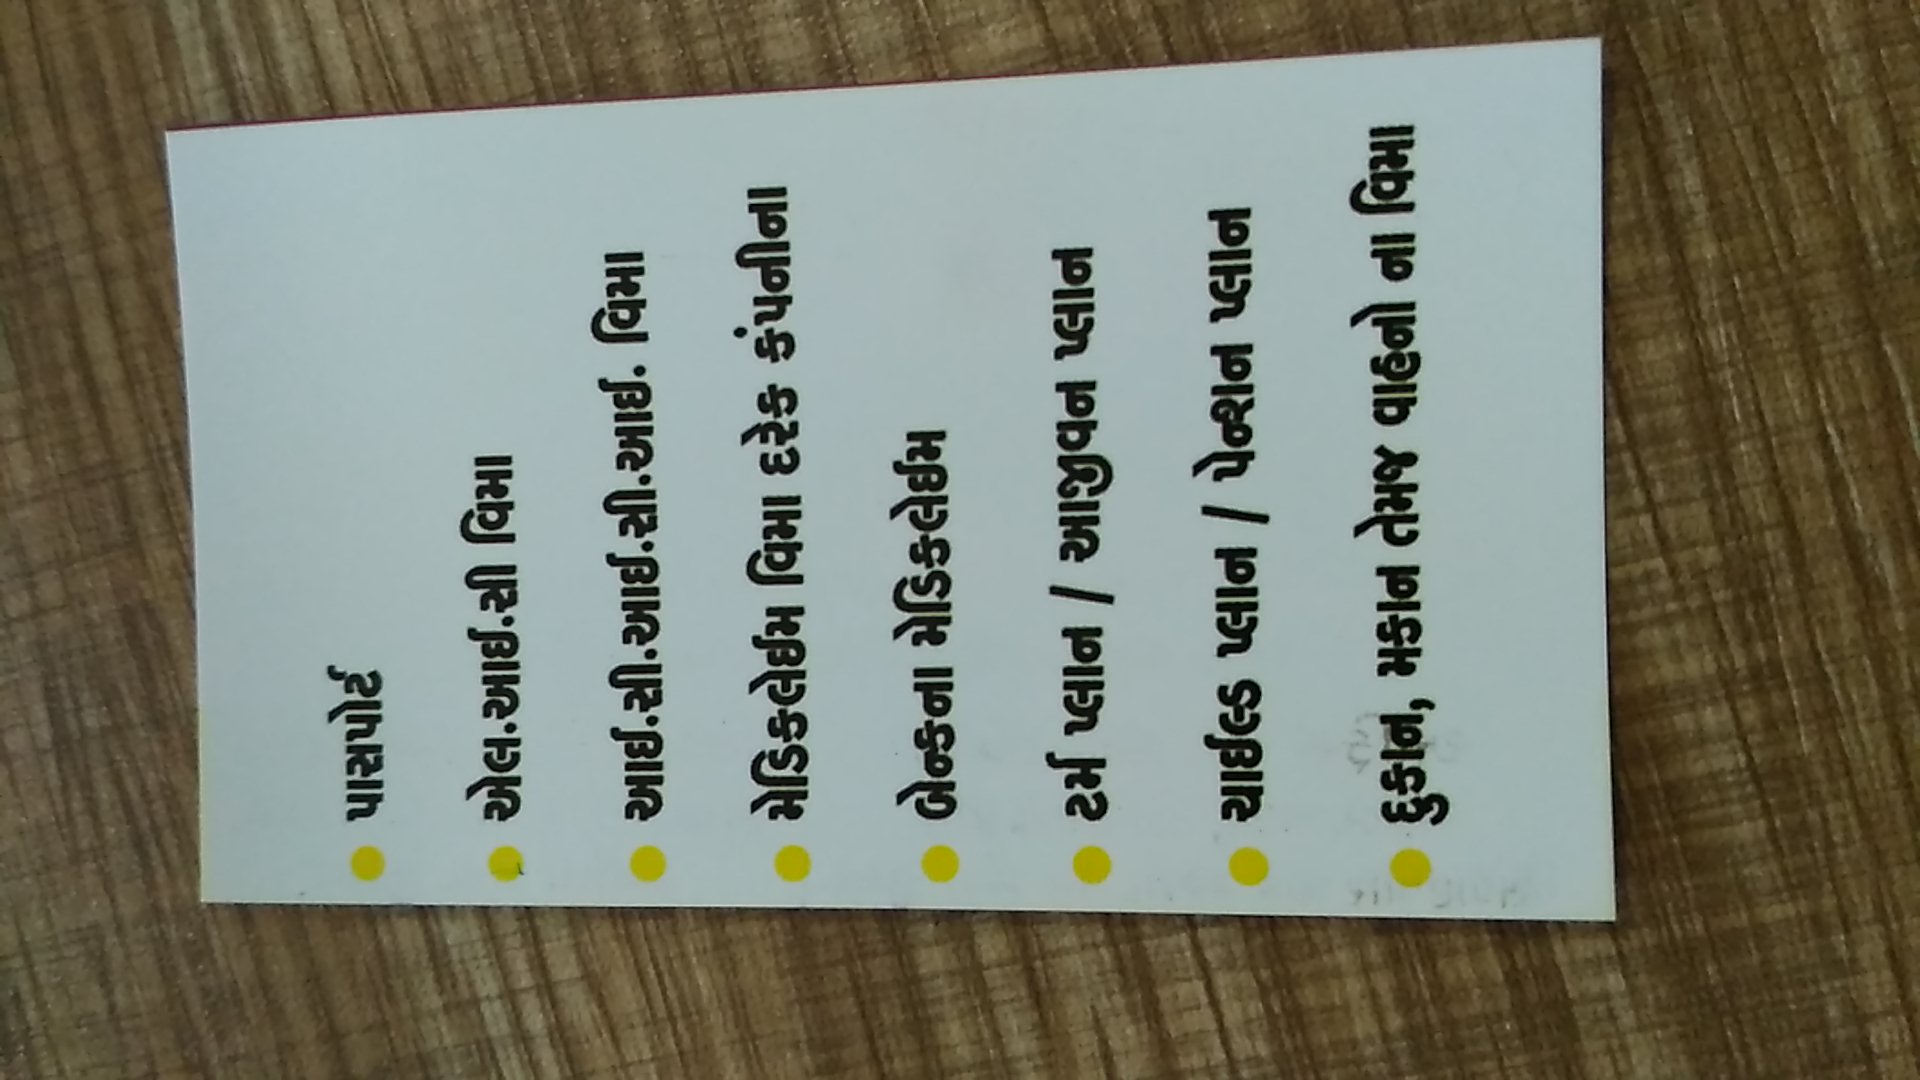 પાસપોર્ટ
એલ.આઈ.સી વિમા
આઈ.સી.આઈ.સી.આઈ. વિમા
મેડિકલેઈમ વિમા દરેક કંપનીના
બેન્કના મેડિકલેઈમ
ટર્મ પ્લાન / આજીવન પ્લાન
ચાઈલ્ડ પ્લાન / પેન્શન પ્લાન
દુકાન, મકાન તેમજ વાહનો ના વિમા